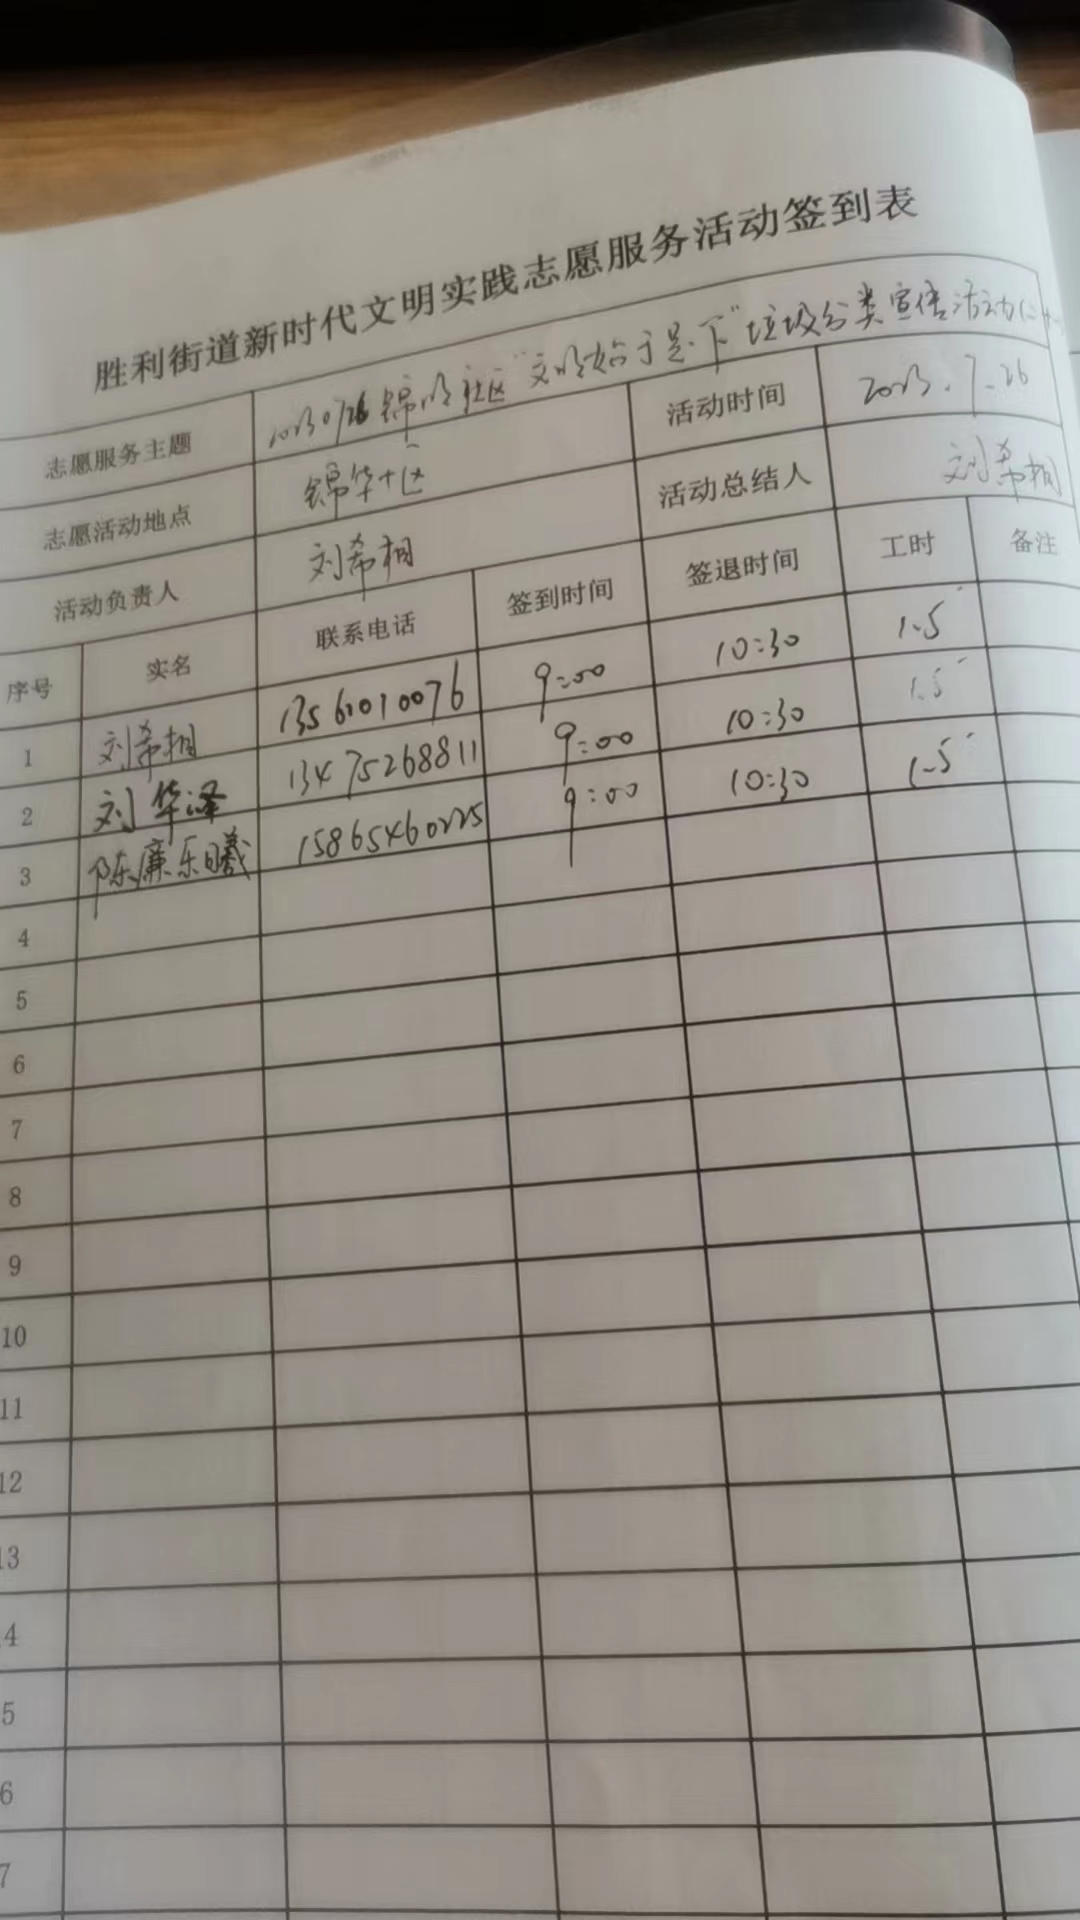 胜利街道新时代文明实践志愿服务活动签到表
志愿服务主题 20230726锦华社区"文明始于足下"垃圾分类宣传活动(二十
志愿活动地点 锦华十区 活动时间 2023.7.26
活动负责人 刘希相 活动总结人 刘希相
序号 实名 联系电话 签到时间 签退时间 工时 备注
1 刘希相 13561010076 9:00 10:30 1.5
2 刘华泽 13475268811 9:00 10:30 1.5
3 陈廉乐曦 15865460225 9:00 10:30 1.5
4
5
6
7
8
9
10
11
12
13
4
5
6
7